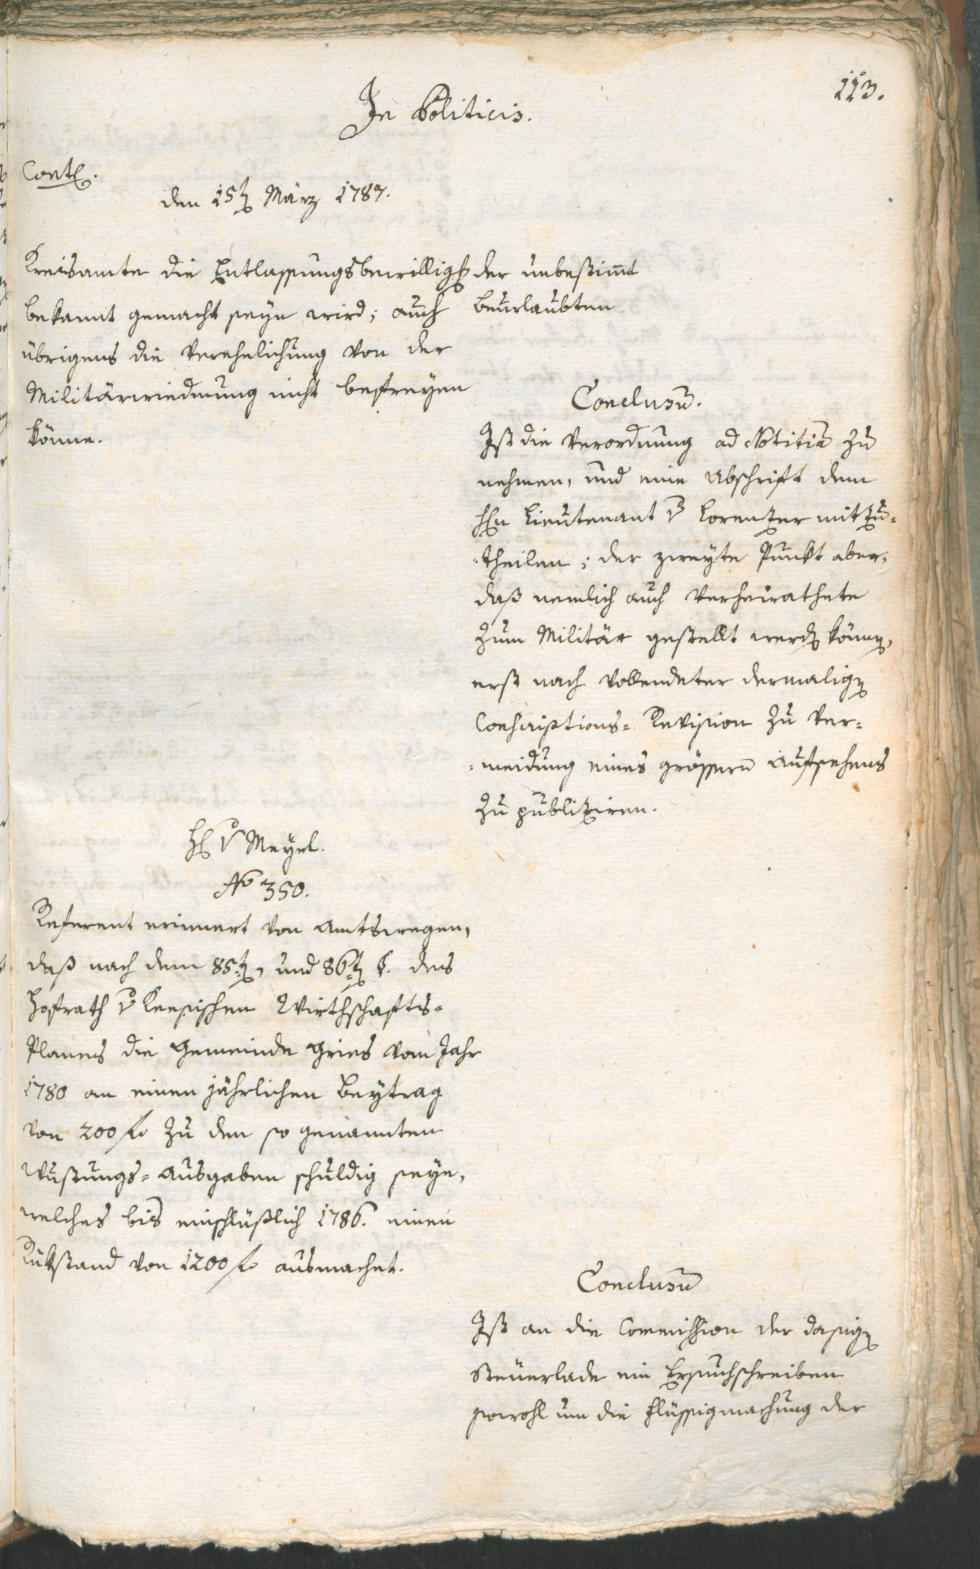 113.
In Politicis.
Cont.
den 15t März 1787.
Kreisamte die Entlassungsbewillig der unbestimt
bekannt gemacht seyn wird; auch beurlaubten
übrigens die Verehelichung von der
Militärwiedmung nicht befreyen
könne.
Conclusũ.
Ist die Verordnung ad Notitiã zu
nehmen, und eine Abschrift dem
Hn Lieutenant v Lorenzer mitzu=
theilen; der zweyte Punkt aber,
daß nemlich auch Verheirathete
zum Militär gestellt werdn könn,
erst nach vollendeter dermalign
Conscriptions= Revision zu Ver=
=meidung eines grössern Aufsehens
zu publiziren.
H v Meyrl.
No 350.
Referent erinnert von Amtswegen,
daß nach dem 85t, und 86t §. des
Hofrath v Keesischen Wirthschafts=
Planns die Gemeinde Gries vom Jahr
1780 an einen jährlichen Beytrag
von 200 f zu den so genannten
Wustungs= Ausgaben schuldig seye,
welches bis einschlüßlich 1786. einen
Rükstand von 1200 f ausmachet.
Conclusũ
Ist an die Commission der dasign
Steuerlade ein Ersuchschreiben
sowohl um die flüssigmachung der